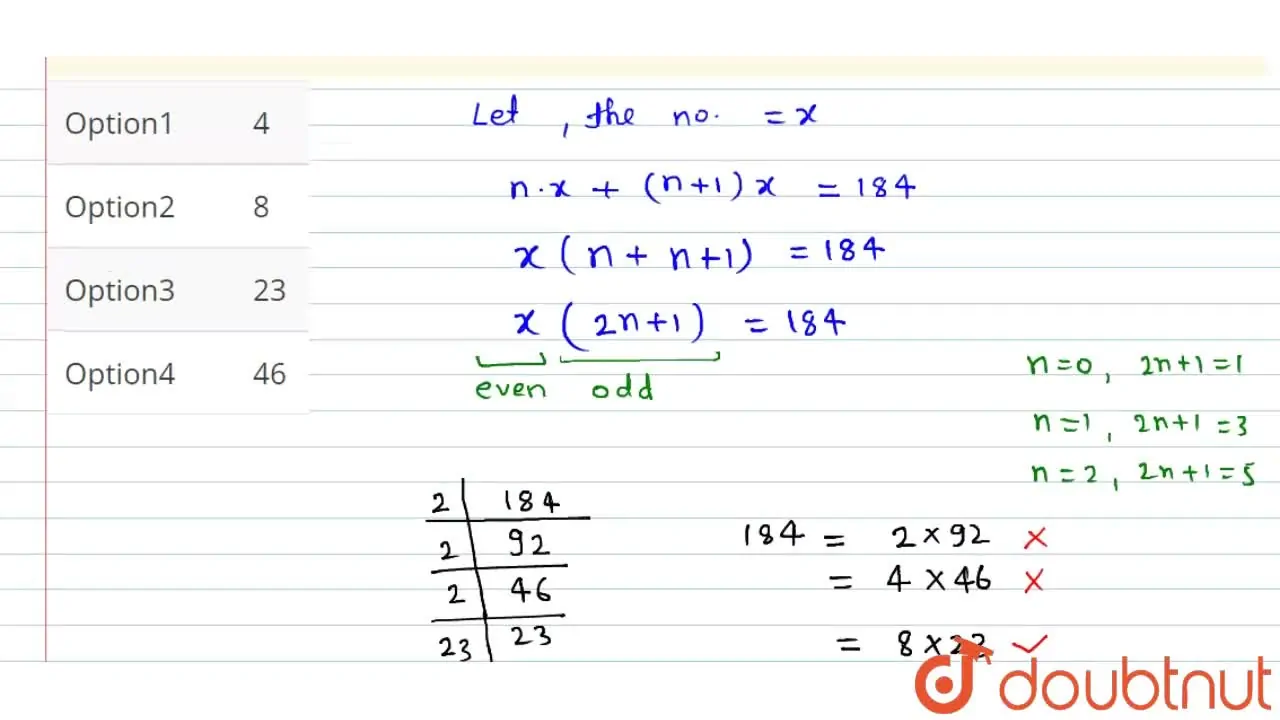 Option1 4
Option2 8
Option3 23
Option4 46
Let , the no. = x
n·x + (n+1)x = 184
x(n + n+1) = 184
x(2n+1) = 184
even odd
n=0, 2n+1=1
n=1, 2n+1=3
n=2, 2n+1=5
2 | 184
2 | 92
2 | 46
23 | 23
184 = 2×92 ×
= 4×46 ×
= 8×23 ✓
doubtnut